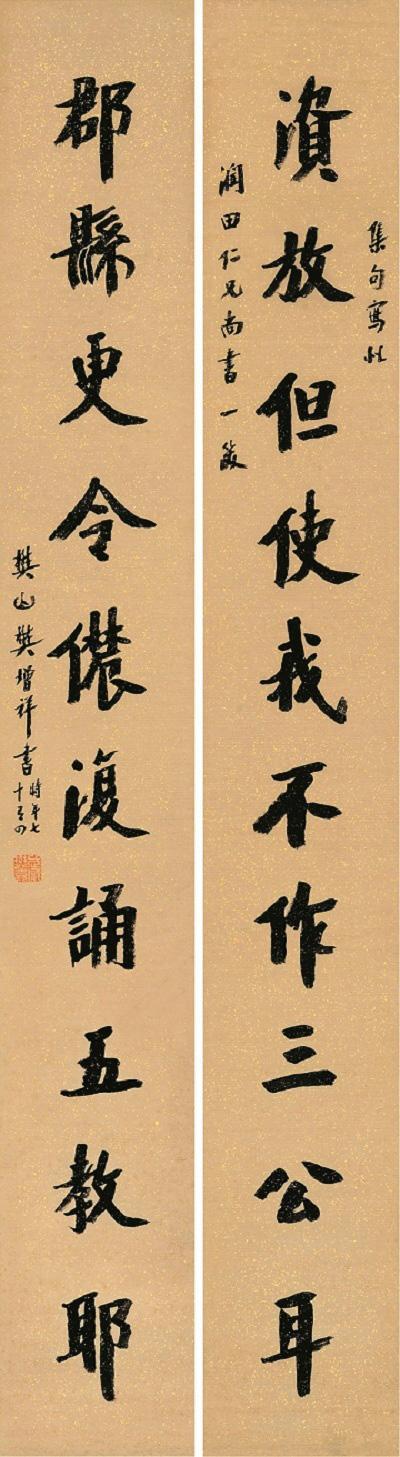 集句寫似
資放但使我不作三公耳
潤田仁兄尚書一笑
郡縣更令儂復誦五教耶
樊山樊增祥書
時年七
十有四